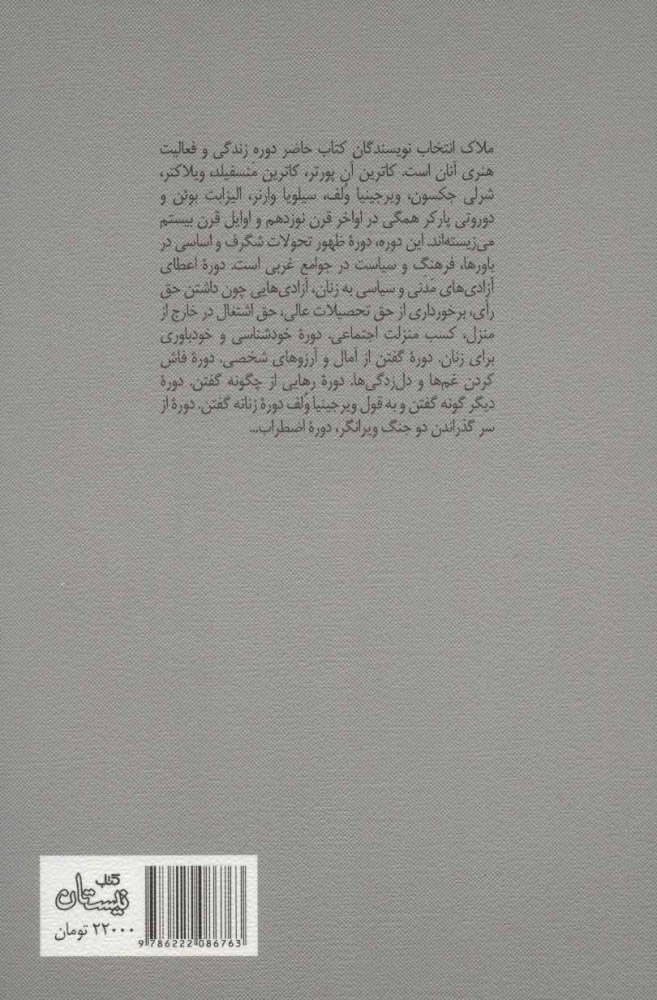 ملاک انتخاب نویسندگان کتاب حاضر دوره زندگی و فعالیت
هنری آنان است. کاترین آن پورتر، کاترین مَنسفیلد، ویلاکتر،
شرلی جکسون، ویرجینیا وُلف، سیلویا وارنر، الیزابت بوئن و
دوروتی پارکر همگی در اواخر قرن نوزدهم و اوایل قرن بیستم
می‌زیسته‌اند. این دوره، دورهٔ ظهور تحولات شگرف و اساسی در
باورها، فرهنگ و سیاست در جوامع غربی است. دورهٔ اعطای
آزادی‌های مَدَنی و سیاسی به زنان، آزادی‌هایی چون داشتن حق
رأی، برخورداری از حق تحصیلات عالی، حق اشتغال در خارج از
منزل، کسب منزلت اجتماعی. دورهٔ خودشناسی و خودباوری
برای زنان. دورهٔ گفتن از آمال و آرزوهای شخصی. دورهٔ فاش
کردن غم‌ها و دل‌زدگی‌ها. دورهٔ رهایی از چگونه گفتن. دورهٔ
دیگر گونه گفتن و به قول ویرجینیا وُلف دورهٔ زنانه گفتن. دورهٔ از
سر گذراندن دو جنگ ویرانگر، دورهٔ اضطراب...
کتاب
نیستان
۲۲۰۰۰ تومان
9 786222 086763